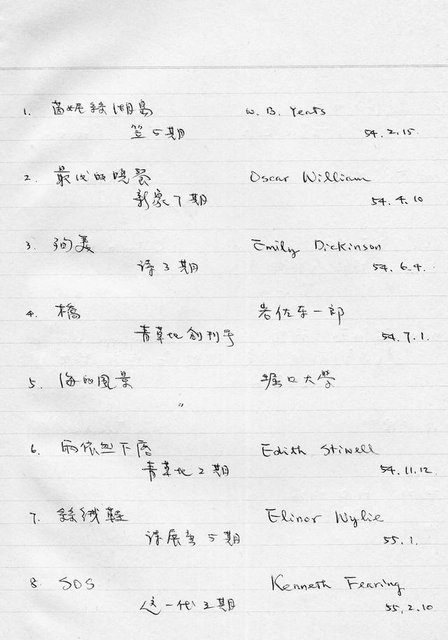 1. 茵妮絲湖島 W. B. Yeats
笠5期 54.2.15.
2. 最後的晚餐 Oscar William
新象7期 54.4.10
3. 殉美 Emily Dickinson
詩3期 54.6.4.
4. 橋 岩佐东一郎
青草地創刊号 54.7.1.
5. 海的風景 堀口大學
〃
6. 雨依然下落 Edith Stiwell
青草地2期 54.11.12.
7. 絲絨鞋 Elinor Wylie
詩展望5期 55.1.
8. SOS Kenneth Fearing
这一代3期 55.2.10